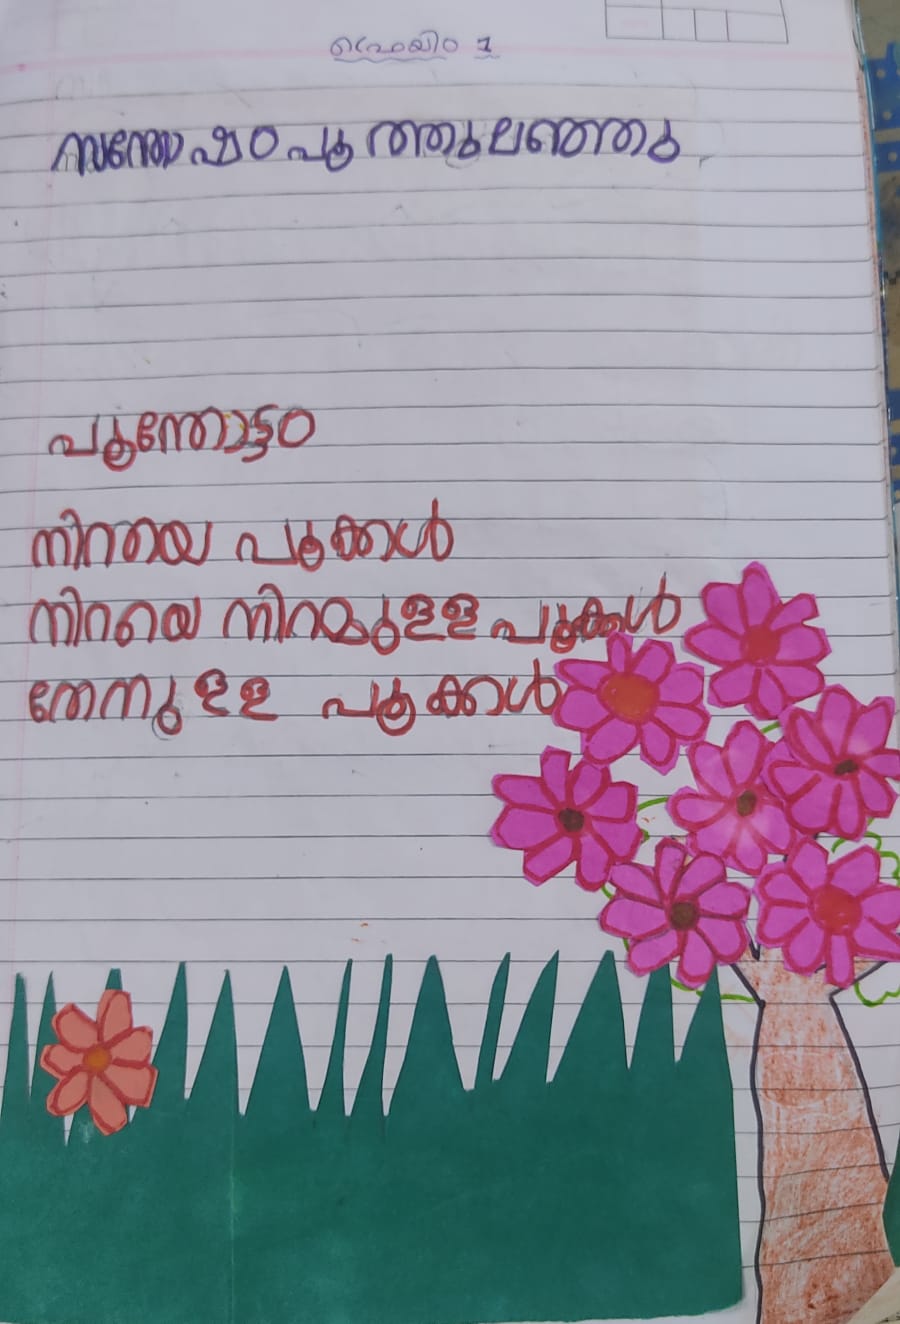 ഫ്രെയിം 1
സന്തോഷം പൂത്തുലഞ്ഞു
പൂന്തോട്ടം
നിറയെ പൂക്കൾ
നിറയെ നിറമുള്ള പൂക്കൾ
തേനുള്ള പൂക്കൾ